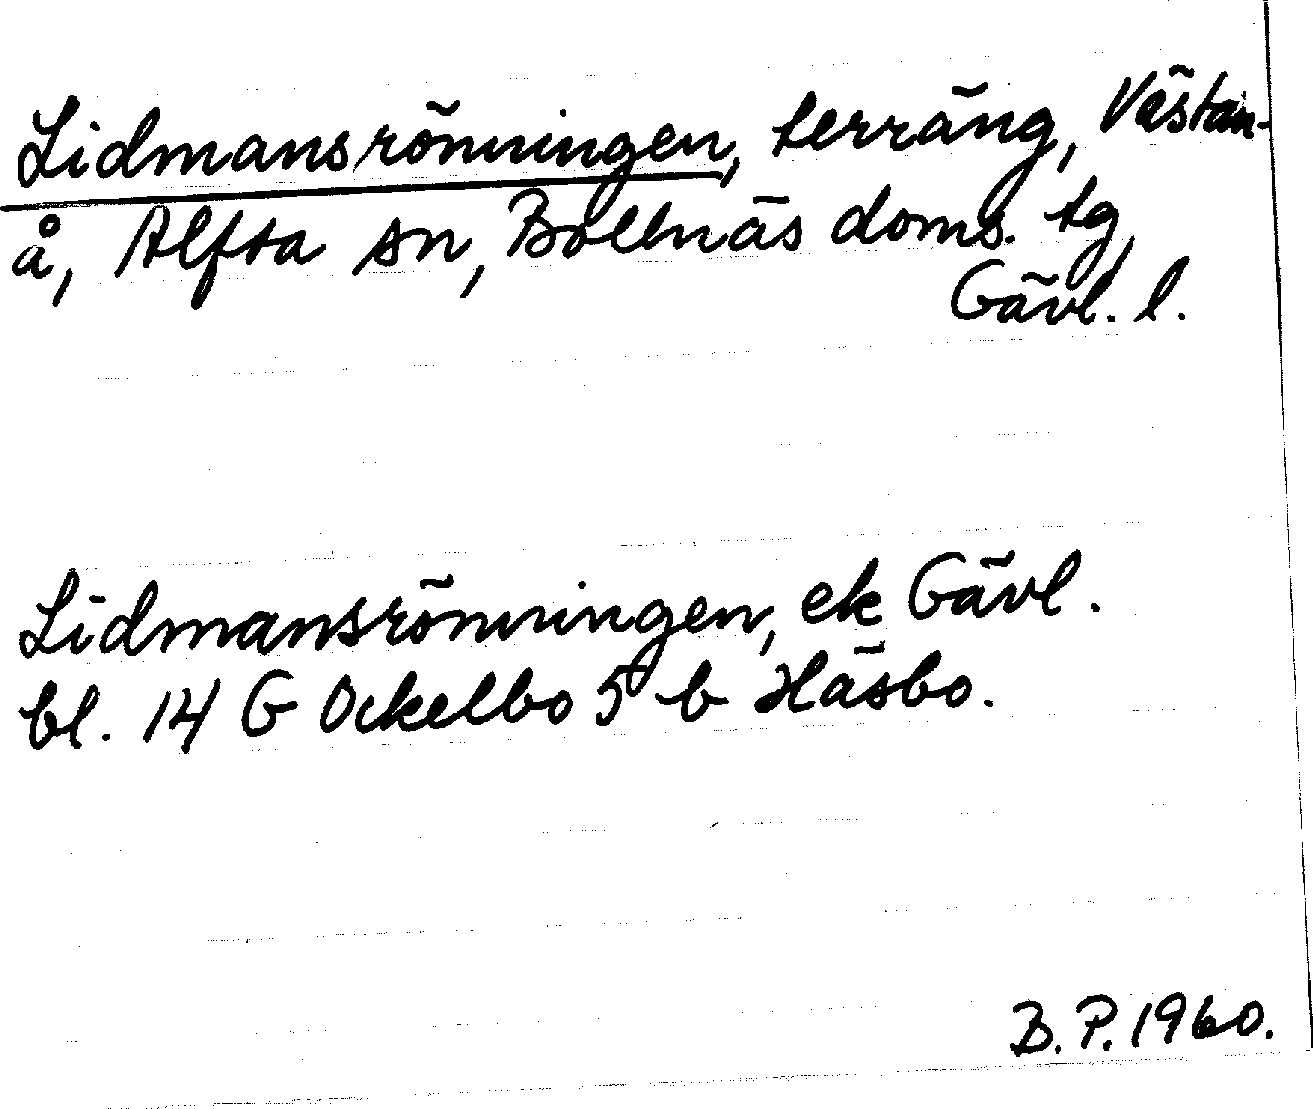 Lidmansrönningen, terräng, Västan-
å, Alfta sn, Bollnäs doms. tg,
Gävl. l.
Lidmansrönningen, ek Gävl.
bl. 14 G Ockelbo 5 b Häsbo.
B. P. 1960.